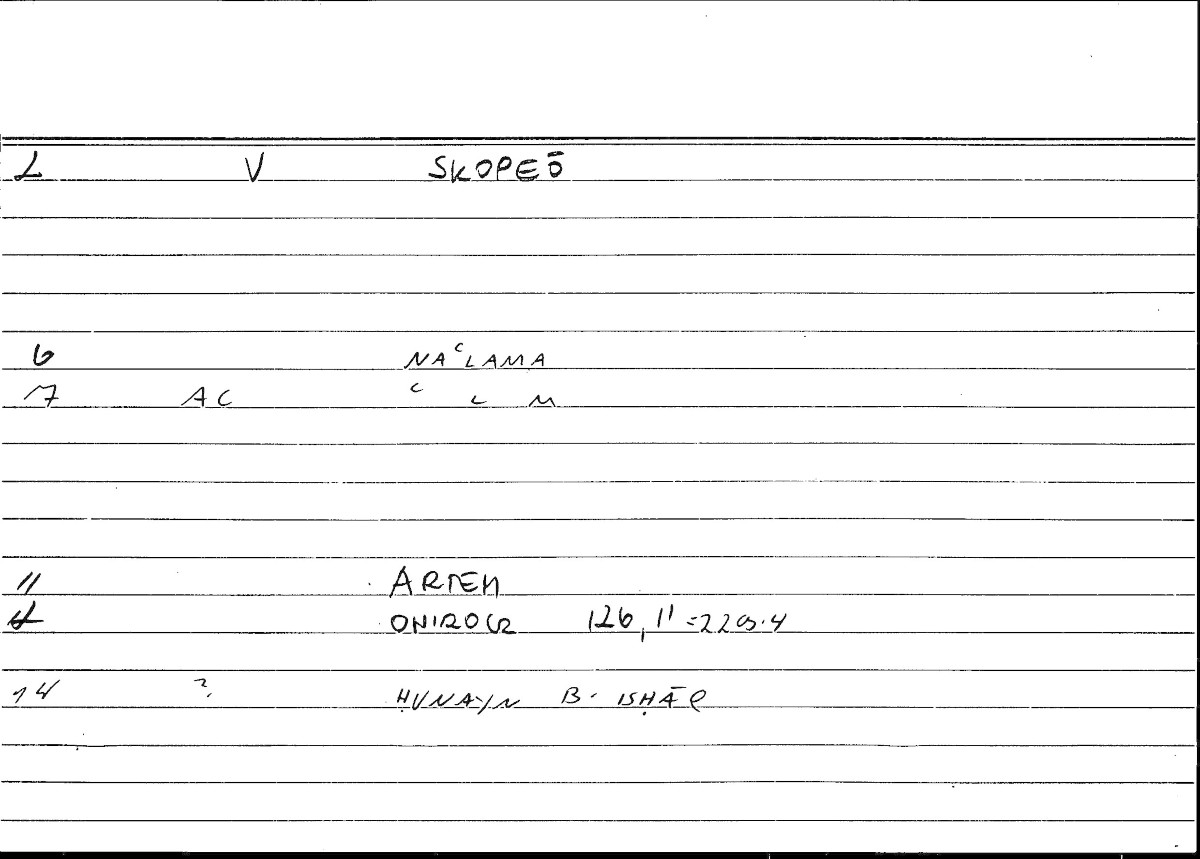 2 V SKOPEŌ
6 NAʿLAMA
7 AC ʿ L M
11 ARTEM
ONIROCR 126, 11 = 229.4
14 ?. ḤUNAYN B. ISḤĀQ